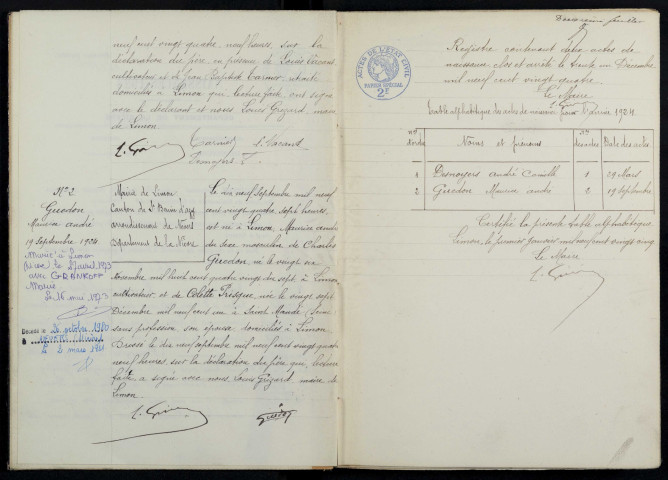 mil neuf cent vingt quatre, neuf heures, sur la
déclaration du père, en présence de Louis Vacant
cultivateur et de Jean Baptiste Tarnier
domiciliés à Limon qui, lecture faite, ont signé
avec le déclarant et nous Louis Grizard, maire
de Limon.
Tarnier L. Vacant
Desnoyers
N° 2
Guedon
Maurice André
19 Septembre 1924
Marié à Limon
(Nièvre) le 21 avril 1973
avec GRANKOFF
Le 16 mai 1973
Décédé le 26 octobre 1980
à
le 2 mars 1981
Mairie de Limon
Canton de St Benin d'Azy
arrondissement de Nevers
département de la Nièvre
Le dix neuf septembre mil neuf
cent vingt quatre sept heures,
est né à Limon, Maurice André
du sexe masculin de Charles
Guedon, né le vingt un
Novembre mil huit cent quatre vingt dix sept à Limon
cultivateur, et de Colette Presque, née le vingt sept
Décembre mil neuf cent un à Saint Mandé (Seine)
sans profession son épouse domiciliés à Limon.
Dressé le dix neuf septembre mil neuf cent vingt quatre
neuf heures, sur la déclaration du père qui, lecture
faite a signé avec nous, Louis Grizard, maire de
Limon.
Guedon
ACTES DE L'ETAT CIVIL
PAPIER SPECIAL
2F
Registre contenant deux actes de
naissance clos et arrêté le trente un Décembre
mil neuf cent vingt quatre
Le Maire
Table alphabétique des actes de naissance pour l'année 1924
Nos d'ordre Noms et prénoms Nos des actes Date des actes
1 Desnoyers André Camille 1 29 Mars
2 Guedon Maurice André 2 19 septembre
Certifié la présente table alphabétique
Limon, le premier Janvier mil neuf cent vingt cinq
Le Maire